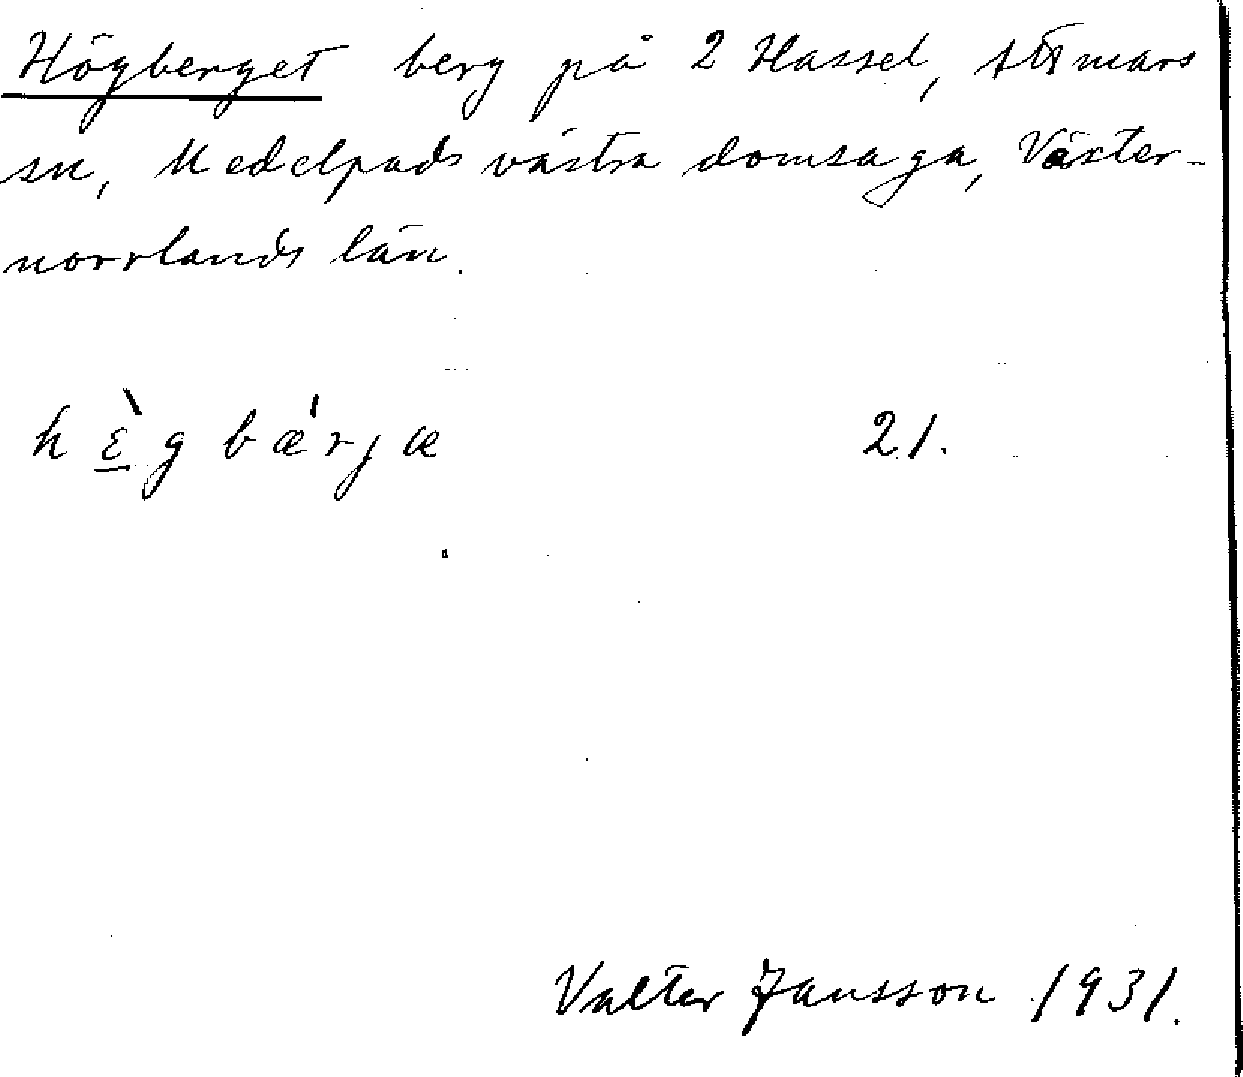 Högberget berg på 2 Hassel, Attmars
sn, Medelpads västra domsaga, Väster-
norrlands län.
hɛ̠̀gbæ̍rjæ 21.
Valter Jansson 1931.